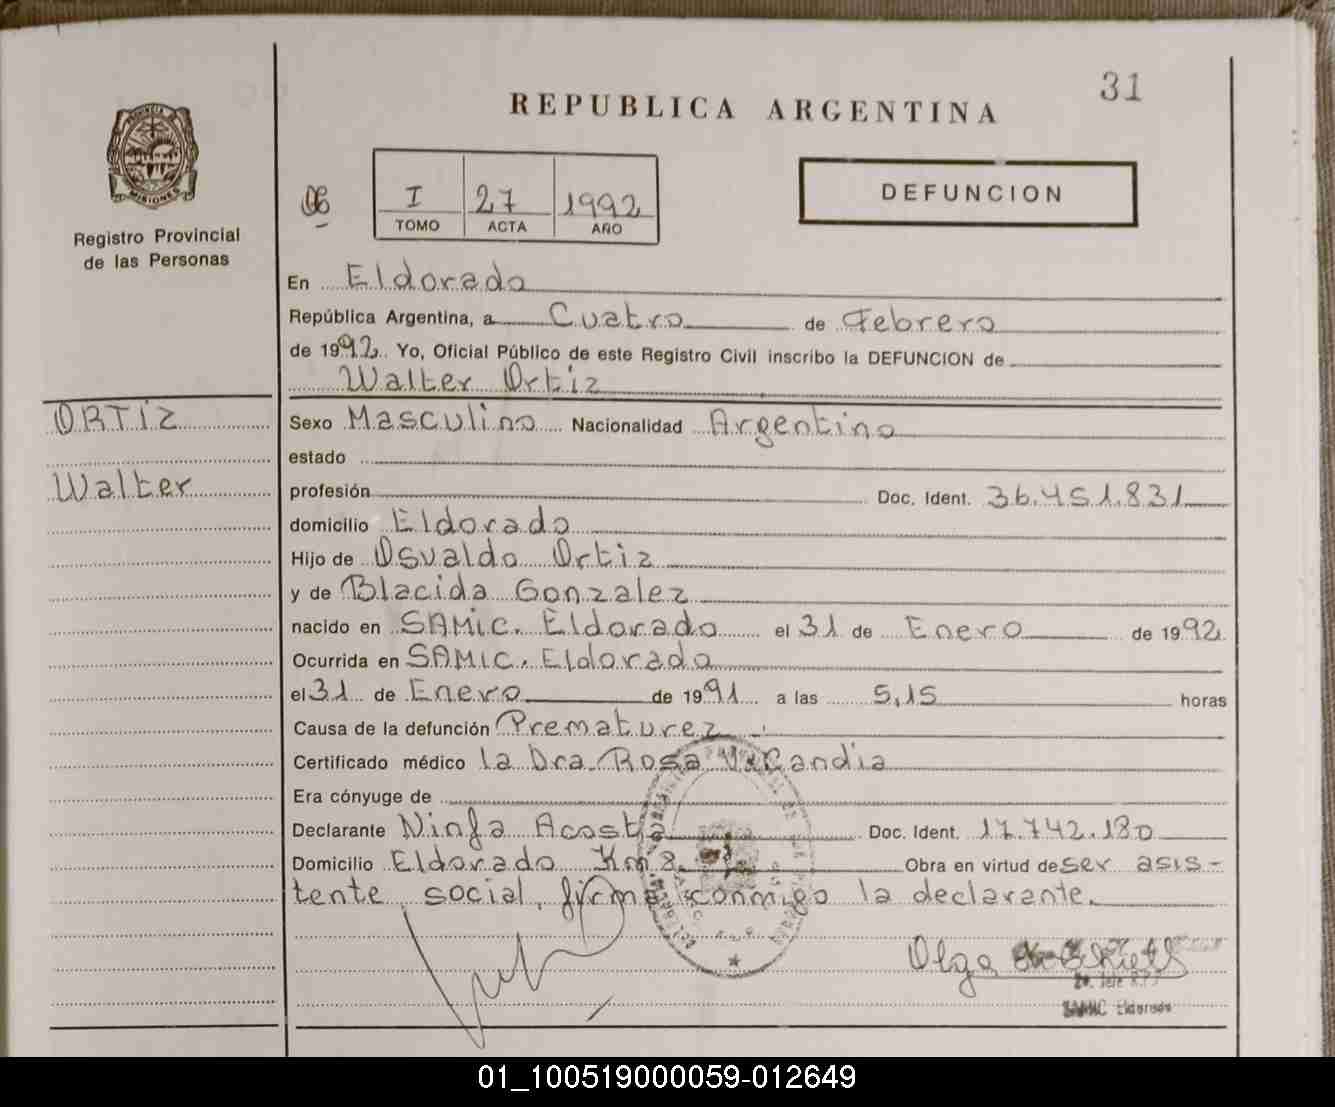 31
REPUBLICA ARGENTINA
PROVINCIA DE
MISIONES
Registro Provincial
de las Personas
I 27 1992
TOMO ACTA AÑO
DEFUNCION
En Eldorado
República Argentina, a Cuatro de Febrero
de 1992. Yo, Oficial Público de este Registro Civil inscribo la DEFUNCION de
Walter Ortiz
ORTIZ
Walter
Sexo Masculino Nacionalidad Argentino
estado
profesión Doc. Ident. 36.451.831
domicilio Eldorado
Hijo de Osvaldo Ortiz
y de Blacida Gonzalez
nacido en SAMIC. Eldorado el 31 de Enero de 1992
Ocurrida en SAMIC. Eldorado
el 31 de Enero de 1991 a las 5,15 horas
Causa de la defunción Prematurez
Certificado médico la Dra. Rosa Candia
Era cónyuge de
Declarante Ninfa Acosta Doc. Ident. 17.742.180
Domicilio Eldorado Km 8 Obra en virtud de ser asis-
tente social, firma conmigo la declarante.
Olga
SAMIC Eldorado
01_100519000059-012649